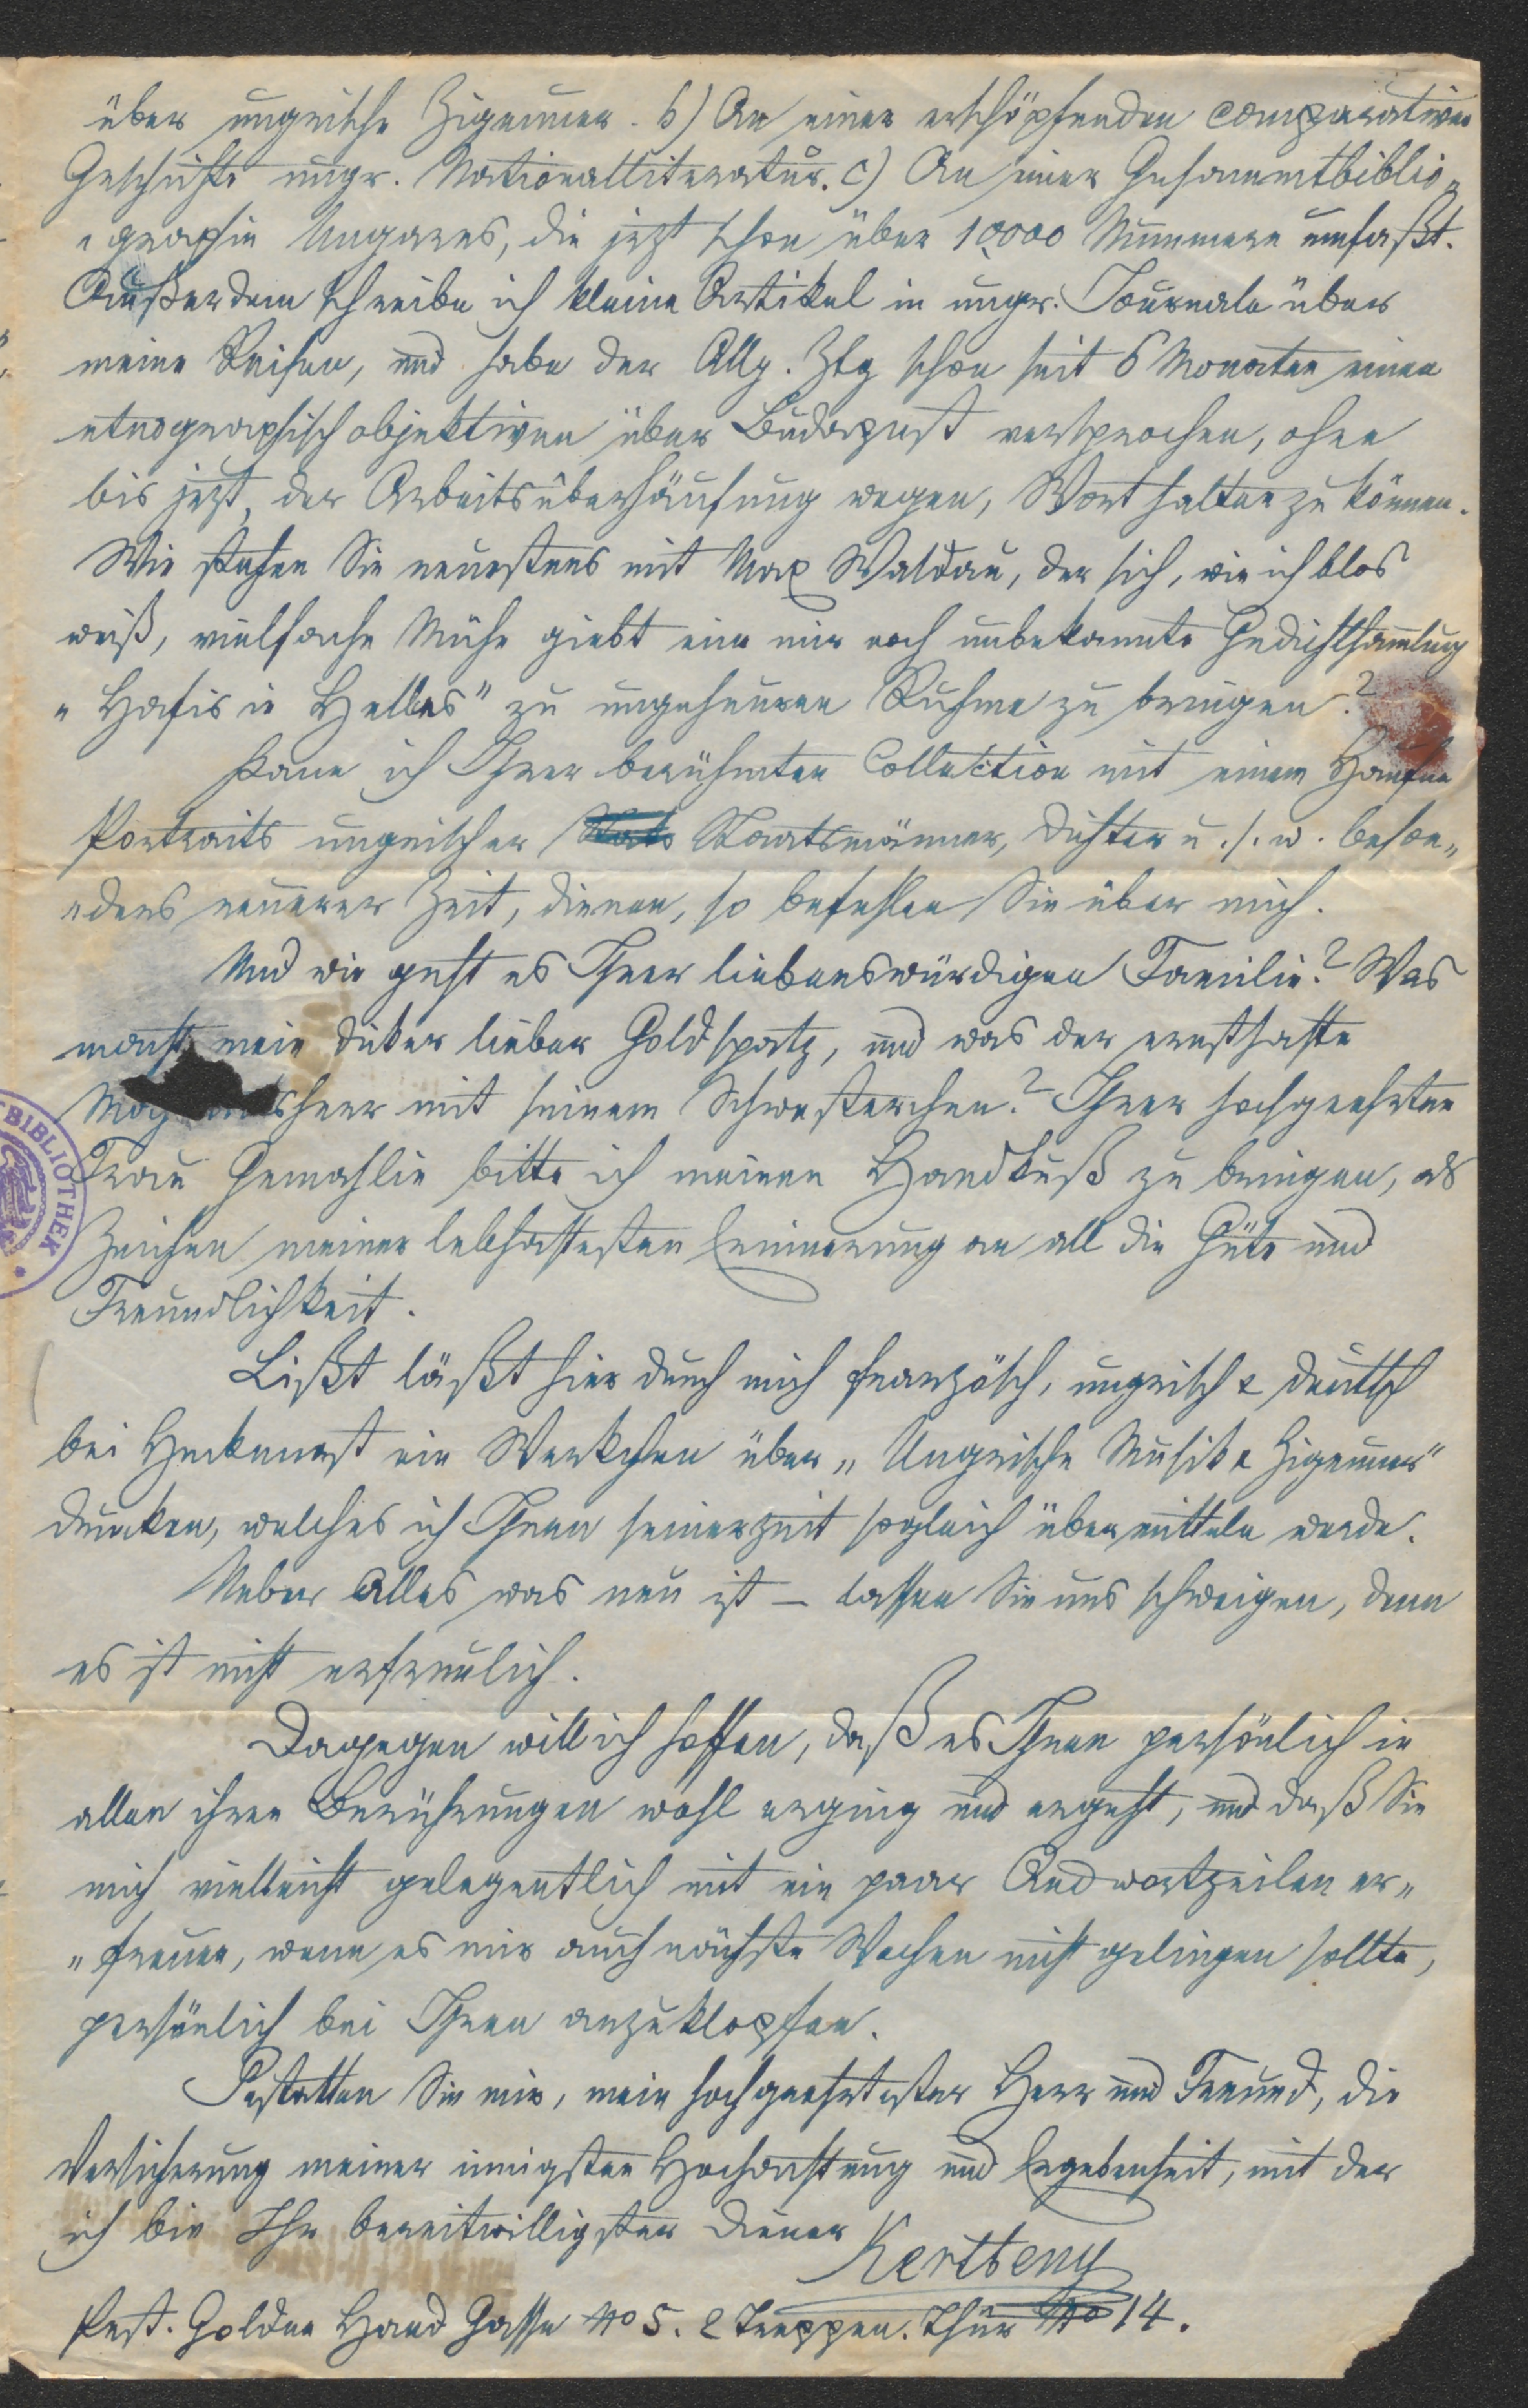 über ungrische Zigeuner. b) An einer erschöpfenden comparativen
Geschichte ungr. Nationalliteratur. c) An einer Gesammtbiblio„
„graphie Ungarns, die jezt schon über 10,000 Nummern umfaßt.
Außerdem schreibe ich kleine Artikel in ungr. Journale über
meine Reisen, und habe der Allg. Ztg schon seit 6 Monaten einen
etnographisch objektiven über Budapest versprochen, ohne
bis jezt, der Arbeitsüberhäufung wegen, Wort halten zu können.
Wie stehen Sie neuestens mit Max Waldau, der sich, wie ich blos
weiß, vielfache Mühe giebt eine mir noch unbekannte Gedichtsammlung
„Hafis in Hellas" zu ungeheuren Ruhme zu bringen?
Kann ich Ihrer berühmten Collection mit einem Haufen
Portraits ungrischer Staatsmänner, Dichter u. s. w. beson„
„ders neuerer Zeit, dienen, so befehlen Sie über mich.
Und wie geht es Ihrer liebenswürdigen Familie? Was
macht mein dicker lieber Goldspatz, und was der ernsthafte
herr mit seinem Schwesterchen? Ihrer hochgeehrten
Frau Gemahlin bitte ich meinen Handkuß zu bringen, als
Zeichen meiner lebhaftesten Erinnerung an all die Güte und
Freundlichkeit.
Lißt läßt hier durch mich französch, ungrisch & deutsch
bei Heckenast ein Werkchen über „Ungrische Musik & Zigeuner"
drucken, welches ich Ihnen seinerzeit sogleich übermitteln werde.
Ueber Alles was neu ist – lassen Sie uns schweigen, denn
es ist nicht erfreulich.
Dagegen will ich hoffen, daß es Ihnen persönlich in
allen ihren Berührungen wohl erging und ergeht, und daß Sie
mich vielleicht gelegentlich mit ein paar Andwortzeilen er„
„freuen, wenn es mir auch nächste Wochen nicht gelingen sollte,
persönlich bei Ihnen anzuklopfen.
Gestatten Sie mir, mein hochgeehrtester Herr und Freund, die
Versicherung meiner innigsten Hochachtung und Ergebenheit, mit der
ich bin Ihr bereitwilligster Diener
Kertbeny
Pest. Goldne Hand Gasse No 5. 2 Treppen. Thür No 14.
BIBLIOTHEK